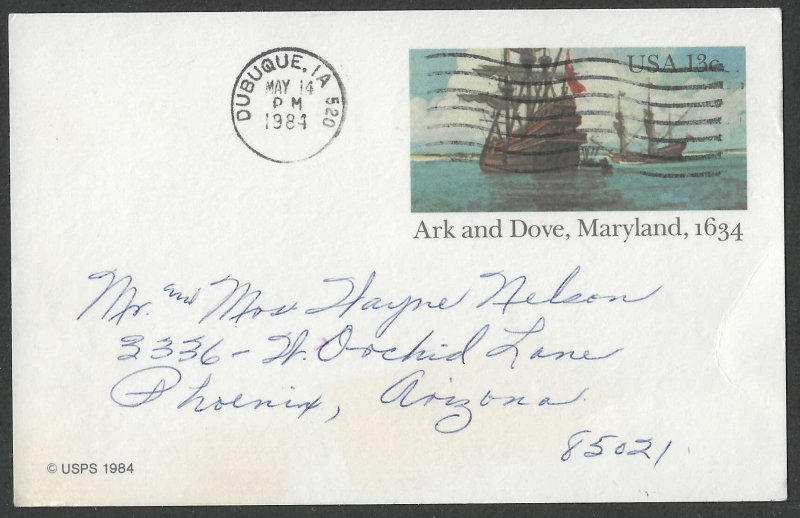 DUBUQUE, IA 520
MAY 14
PM
1984
USA 13c
Ark and Dove, Maryland, 1634
Mr. and Mrs. Wayne Nelson
3336 - W. Orchid Lane
Phoenix, Arizona.
85021
© USPS 1984